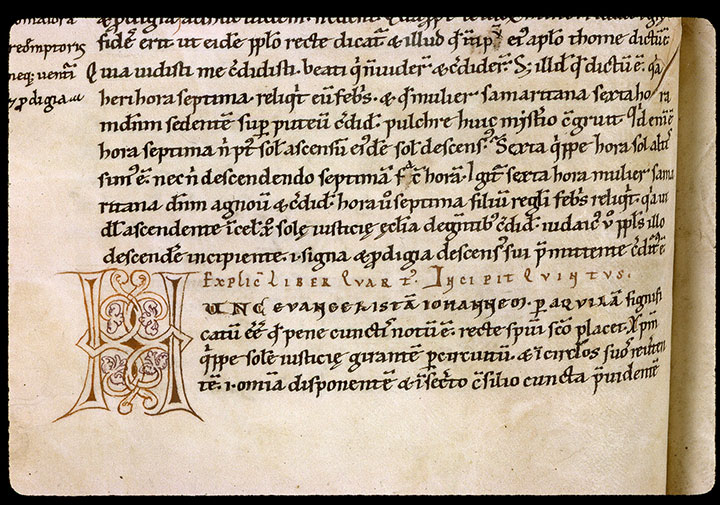 redemptoris
neq; uenturi
& pdigia
fidē erit ut eidē pplo recte dicat̄ & illud apło thome dictū ē.
Quia uidisti me c̄didisti. beati q̄ n̄ uider̄ & c̄dider̄. S; illd̓ q̄ dictū ē. q̄a
heri hora septima reliq̄t eū febs̓. & q̄ mulier samaritana sexta hora
in dn̄m sedentē sup puteū c̄did̓. pulchre huic mystio c̄gruit. Id enī ē
hora septima n̄ pt̓ soł ascensū eidē soł descens̓. Sexta q̄ppe hora soł altis
sim̓ ē. nec n̄ descendendo septimā fac̄ horā. Igit̄ sexta hora mulier sama
ritana dn̄m agnouit & c̄did̓. hora u̓ septima filiū reguli febs̓ reliq̄t. q̄a ut
dł ascendente in celū xp̄o sole iusticię ęcłia de gentib; c̄did̓. iudaic̓ u̓ ppłs illo
descendē incipiente. i. signa & pdigia descens̓ sui p̄mittente c̄dit̓ ē
Explic̄ Liber Quart̓. Incipit Quintus.
HUNC Evangelistā Iohannem. p aquilā signifi
catū ēē q̄ pene cunctis notū ē. recte spūi sc̄o placet. xp̄m
q̄ppe solē iusticię girantē p circuitū. & in circłos suos reuerten
tē. i. omīa disponentē & in sec̄to c̄silio cuncta p̄uidentē